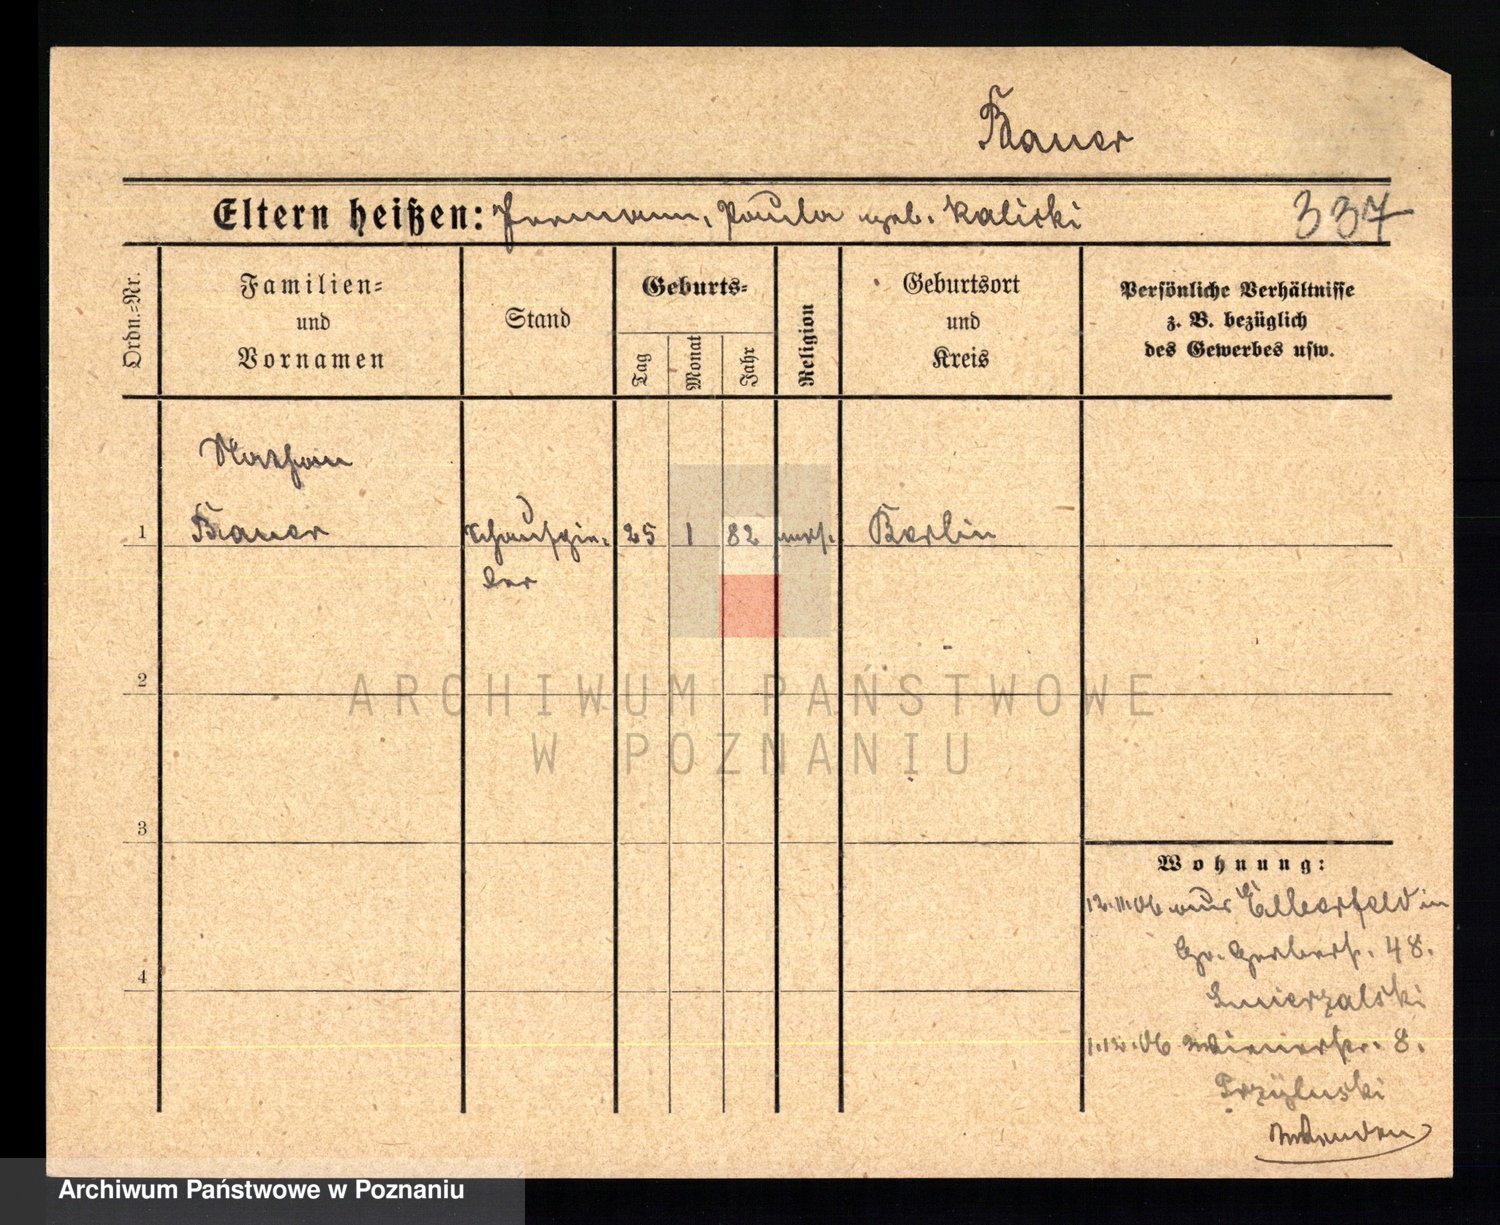 Bauer
Eltern heißen: Hermann, Paula geb. Kaliski 337
Ordn.-Nr.
Familien-
und
Vornamen
Stand
Geburts-
Tag
Monat
Jahr
Religion
Geburtsort
und
Kreis
Persönliche Verhältnisse
z. B. bezüglich
des Gewerbes usw.
Nathan
1 Bauer Schauspie- 25 1 82 mos. Berlin
ler
2
3
4
Wohnung:
12.11.06 aus Elberfeld in
Gr. Gerberstr. 48.
1.12.06 Wienerstr. 8.
Przyluski
ARCHIWUM PAŃSTWOWE
W POZNANIU
Archiwum Państwowe w Poznaniu